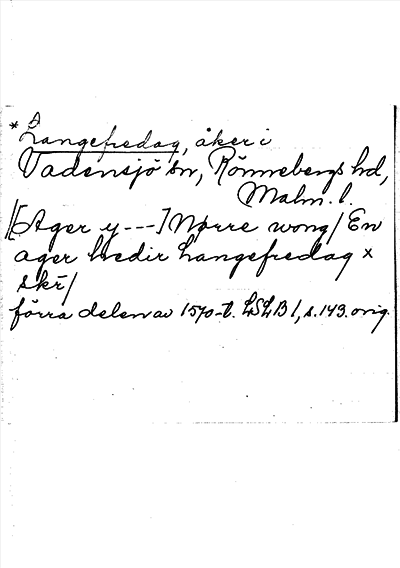 A
* Langefredag, åker i
Vadensjö sn, Rönnebergs hd,
Malm. l.
/[Ager y---] Nørre wong/ En
ager hedir Langefredag x
skr̄/
förra delen av 1570-t. LSLB 1, s. 143. orig.